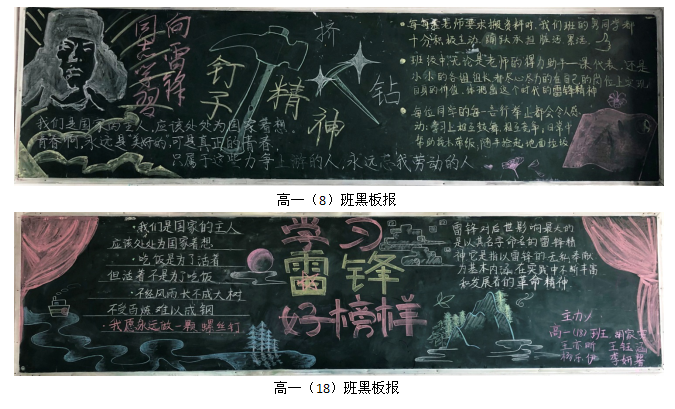 向雷锋
同志学习
钉子
精神
挤
钻
我们是国家的主人，应该处处为国家着想
青春啊，永远是美好的，可是真正的青春
只属于这些力争上游的人，永远忘我劳动的人
每每老师要求搬资料时，我们班的男同学都
十分积极主动，踊跃承担脏活、累活。
班级中无论是老师的得力助手——课代表，还是
小小的各组组长都尽心尽力的在自己的岗位上实现
自身的价值，体现出这个时代的雷锋精神
每位同学的每一言行举止都会令人感
动：学习上相互鼓舞、相互竞争；日常中
帮助
随手捡起地面垃圾
高一（8）班黑板报
学习
雷锋
好榜样
·我们是国家的主人
应该处处为国家着想
·吃饭是为了活着
但活着不是为了吃饭
·不经风雨长不成大树
不受百炼难以成钢
·我愿永远做一颗螺丝钉
雷锋对后世影响最大的
是以其名字命名的雷锋精
神它是指以雷锋的无私奉献
为基本内涵，在实践中不断丰富
和发展着的革命精神
主力人
高一(18)班
高一（18）班黑板报